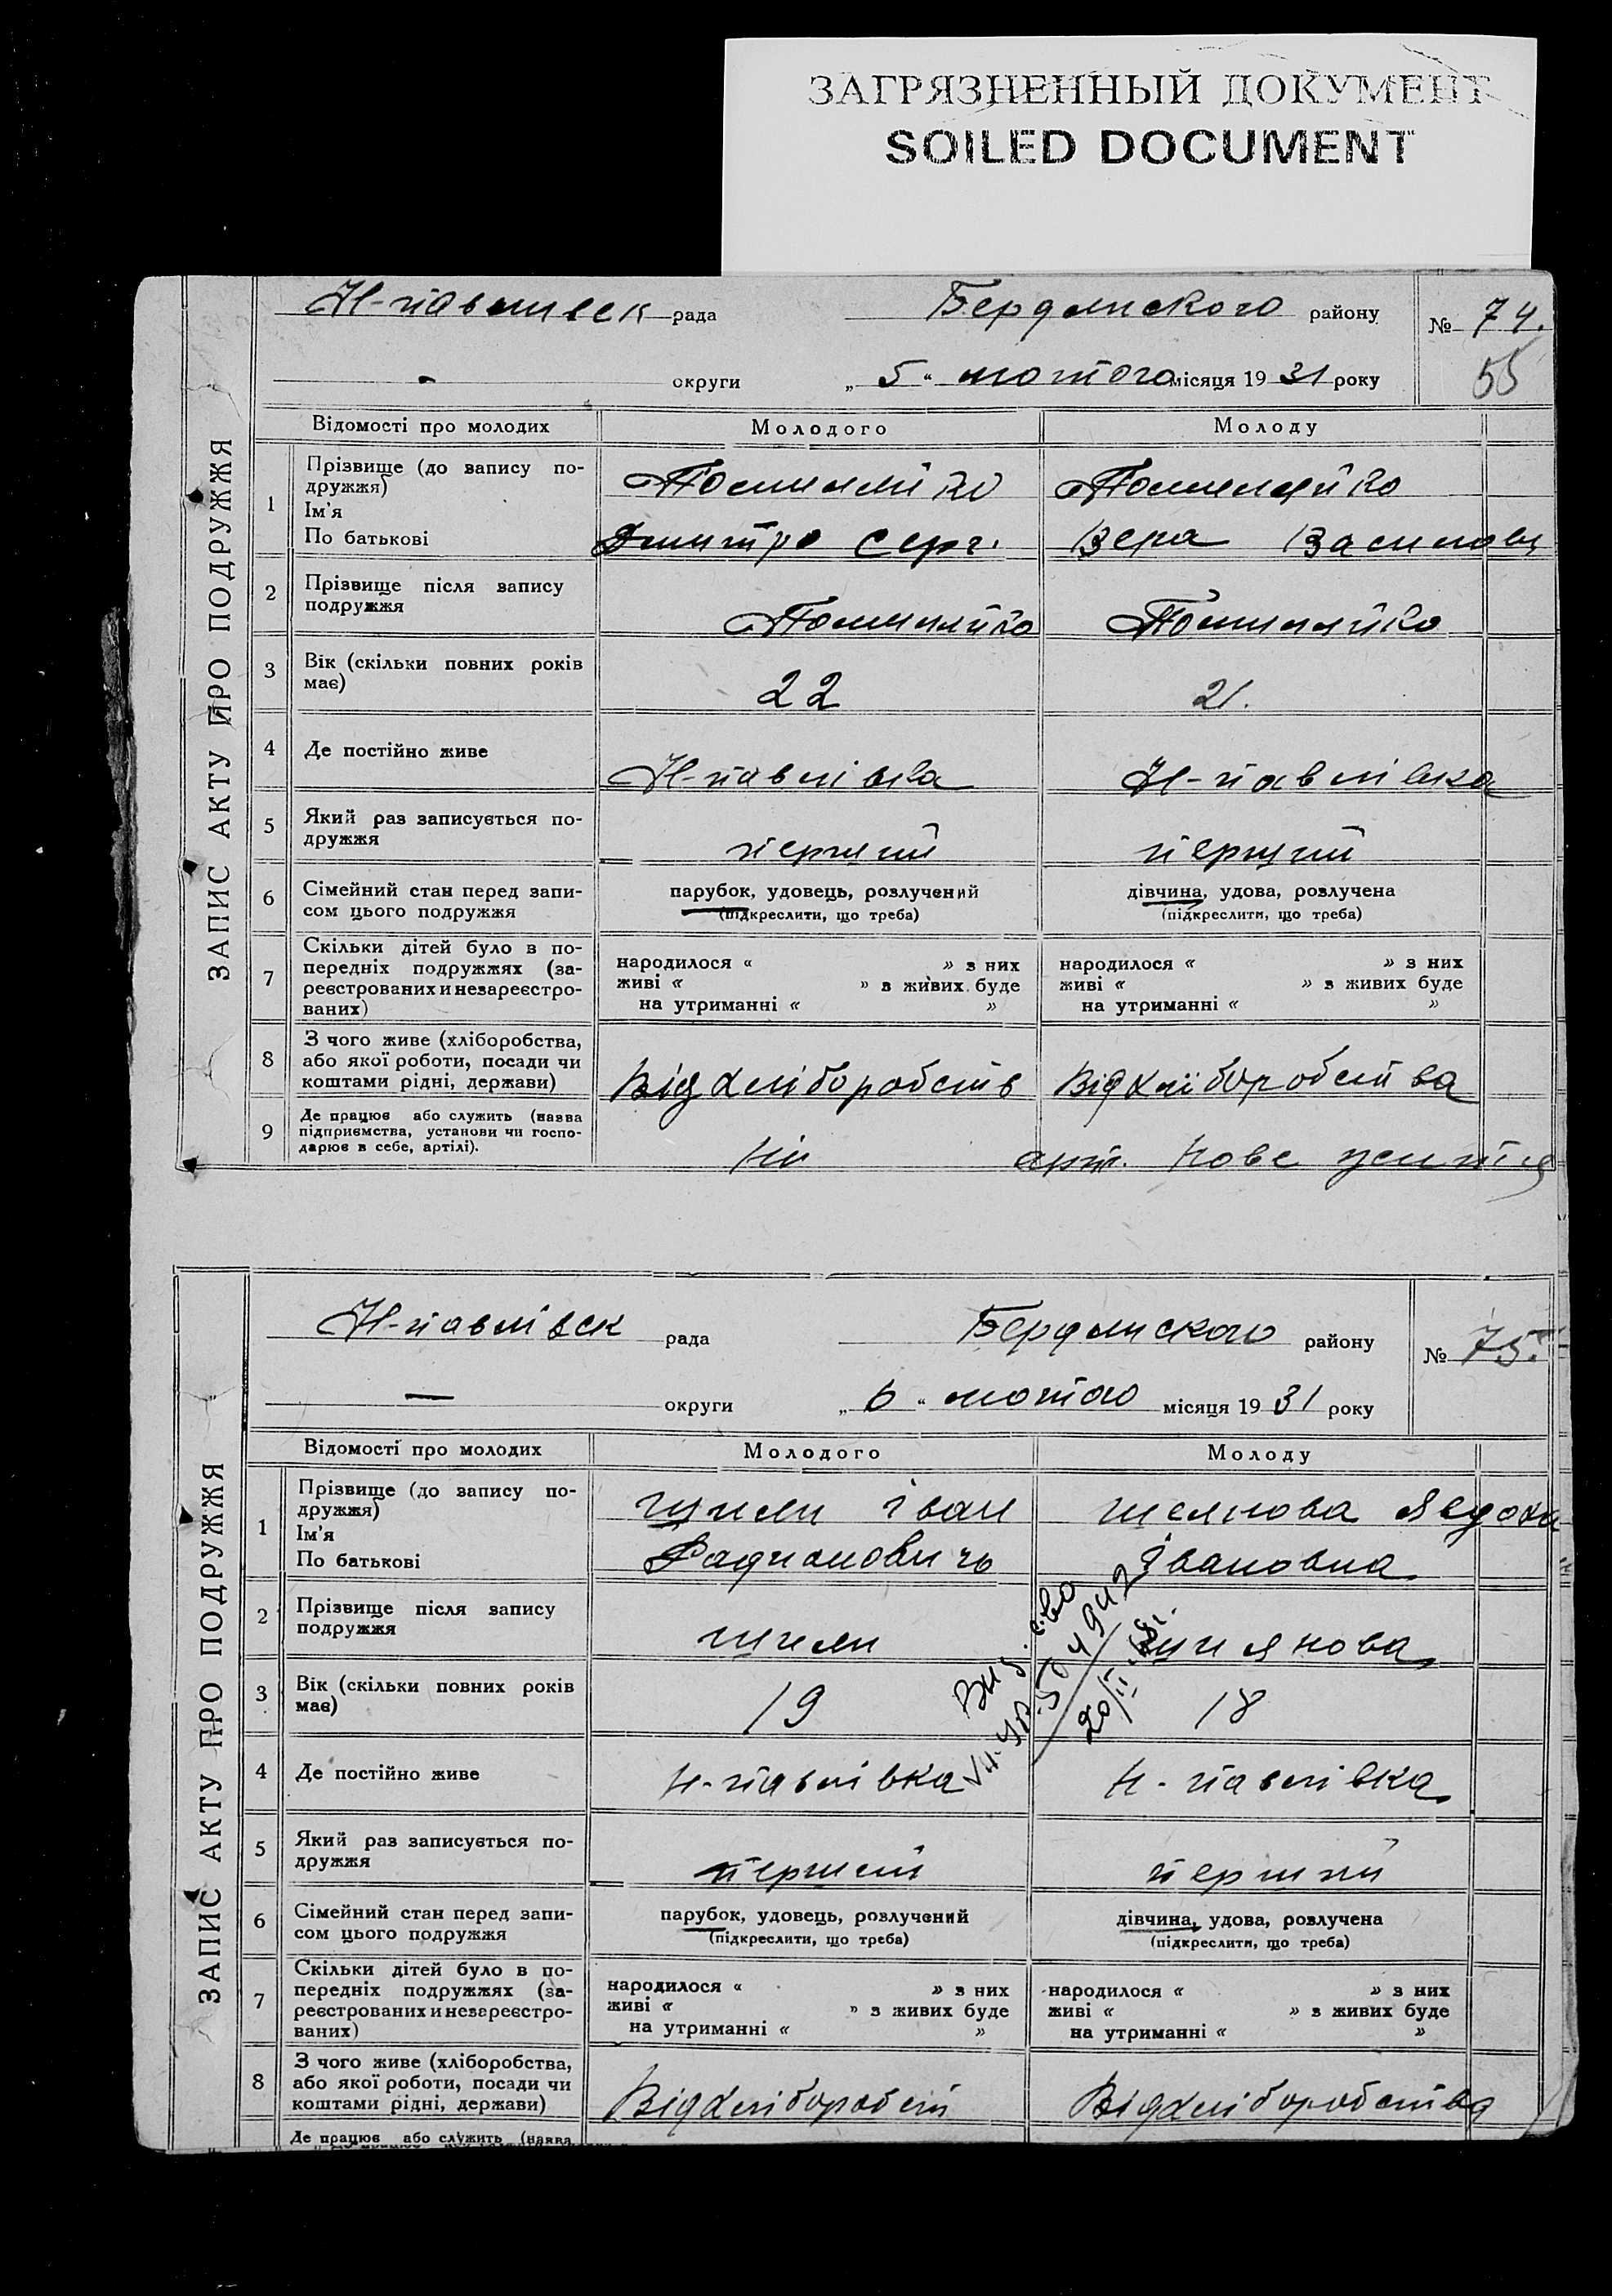 ЗАГРЯЗНЕННЫЙ ДОКУМЕНТ
SOILED DOCUMENT
ЗАПИС АКТУ ПРО ПОДРУЖЖЯ
рада Бердянского району № 74.
55
- округи „ 5 “ лютого місяця 19 31 року
Відомості про молодих Молодого Молоду
1 Прізвище (до запису по-
дружжя)
Ім'я
По батькові
Дмитро Серг. Вера
2 Прізвище після запису
подружжя
3 Вік (скільки повних років
має)
22 21.
4 Де постійно живе
Н-павлівка Н-павлівка
5 Який раз записується по-
дружжя
перший перший
6 Сімейний стан перед запи-
сом цього подружжя
парубок, удовець, розлучений дівчина, удова, розлучена
(підкреслити, що треба) (підкреслити, що треба)
7 Скільки дітей було в по-
передніх подружжях (за-
реєстрованих и незареєстро-
ваних)
народилося « » з них народилося « » з них
живі « » з живих буде живі « » з живих буде
на утриманні « » на утриманні « »
8 З чого живе (хліборобства,
або якої роботи, посади чи
коштами рідні, держави)
Від хліборобств Від хліборобства
9 Де працює або служить (назва
підприємства, установи чи госпо-
дарює в себе, артілі).
арт. Нове
ЗАПИС АКТУ ПРО ПОДРУЖЖЯ
Н-павлівск рада Бердянского району № 75.
— округи „ 6 “ лютого місяця 19 31 року
Відомості про молодих Молодого Молоду
1 Прізвище (до запису по-
дружжя)
Ім'я
По батькові
іван
Івановна
2 Прізвище після запису
подружжя
3 Вік (скільки повних років
має)
19 18
4 Де постійно живе
Н-павлівка Н-павлівка
5 Який раз записується по-
дружжя
перший перший
6 Сімейний стан перед запи-
сом цього подружжя
парубок, удовець, розлучений дівчина, удова, розлучена
(підкреслити, що треба) (підкреслити, що треба)
7 Скільки дітей було в по-
передніх подружжях (за-
реєстрованих и незареєстро-
ваних)
народилося « » з них народилося « » з них
живі « » з живих буде живі « » з живих буде
на утриманні « » на утриманні « »
8 З чого живе (хліборобства,
або якої роботи, посади чи
коштами рідні, держави)
Від хліборобст Від хліборобства
Де працює або служить (назва